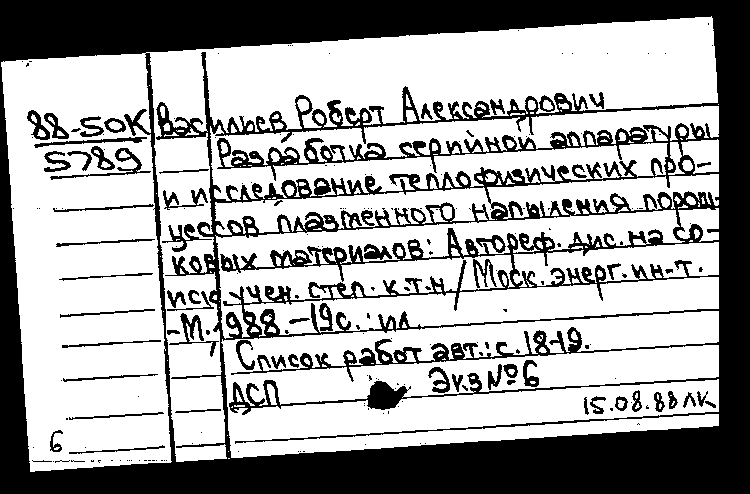 88-50К Васильев Роберт Александрович
5789 Разработка серийной аппаратуры
и исследование теплофизических про-
цессов плазменного напыления порош-
ковых материалов: Автореф. дис. на со-
иск. учен. степ. к.т.н / Моск. энерг. ин-т.
-М., 1988.-19с.: ил.
Список работ авт.: с. 18-19.
ДСП Экз №6
15.08.88 ЛК
6